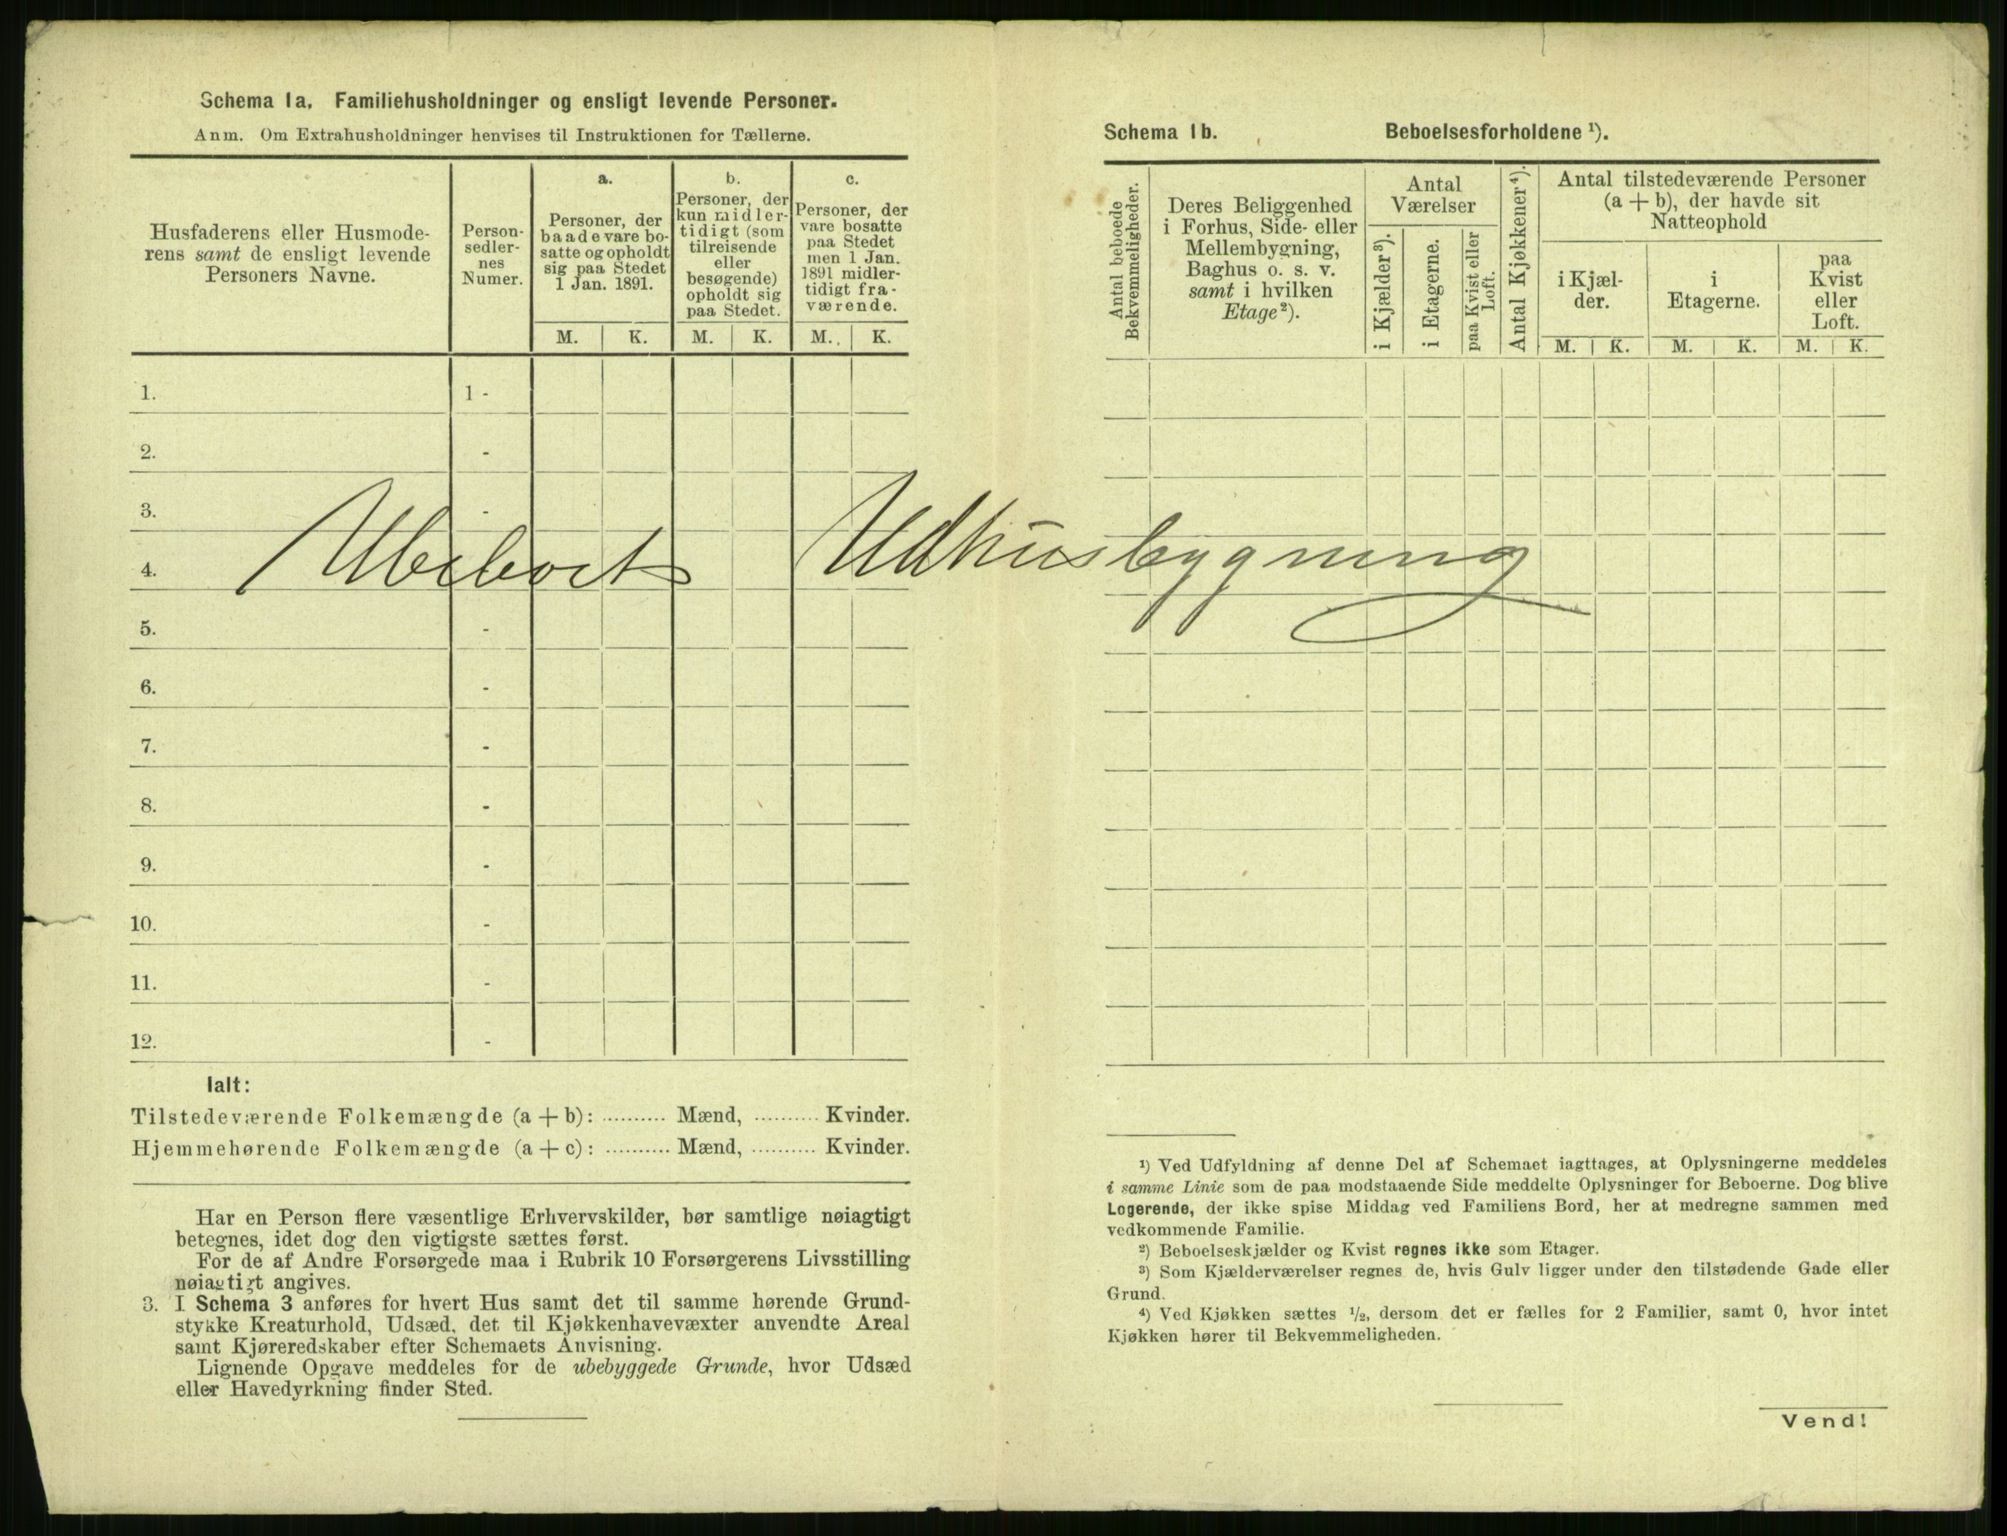 Schema 1a. Familiehusholdninger og ensligt levende Personer.
Anm. Om Extrahusholdninger henvises til Instruktionen for Tællerne.
Husfaderens eller Husmode-
rens samt de ensligt levende
Personers Navne.
Person-
sedler-
nes
Numer.
a.
Personer, der
baade vare bo-
satte og opholdt
sig paa Stedet
1 Jan. 1891.
M. K.
b.
Personer, der
kun midler-
tidigt (som
tilreisende
eller
besøgende)
opholdt sig
paa Stedet.
M. K.
c.
Personer, der
vare bosatte
paa Stedet
men 1 Jan.
1891 midler-
tidigt fra-
værende.
M. K.
1. 1 -
2. -
3. -
4.
5. -
6. -
7. -
8. -
9. -
10. -
11. -
12. -
Ubeboet Udhusbygning
Ialt:
Tilstedeværende Folkemængde (a + b): .......... Mænd, .......... Kvinder.
Hjemmehørende Folkemængde (a + c): .......... Mænd, .......... Kvinder.
Har en Person flere væsentlige Erhvervskilder, bør samtlige nøiagtigt
betegnes, idet dog den vigtigste sættes først.
For de af Andre Forsørgede maa i Rubrik 10 Forsørgerens Livsstilling
nøiagtigt angives.
3. I Schema 3 anføres for hvert Hus samt det til samme hørende Grund-
stykke Kreaturhold, Udsæd, det til Kjøkkenhavevæxter anvendte Areal
samt Kjøreredskaber efter Schemaets Anvisning.
Lignende Opgave meddeles for de ubebyggede Grunde, hvor Udsæd
eller Havedyrkning finder Sted.
Schema 1b. Beboelsesforholdene ¹).
Antal beboede
Bekvemmeligheder.
Deres Beliggenhed
i Forhus, Side- eller
Mellembygning,
Baghus o. s. v.
samt i hvilken
Etage²).
Antal
Værelser
i Kjælder³).
i Etagerne.
paa Kvist eller
Loft.
Antal Kjøkkener⁴).
Antal tilstedeværende Personer
(a + b), der havde sit
Natteophold
i Kjæl-
der.
i
Etagerne.
paa
Kvist
eller
Loft.
M. K. M. K. M. K.
¹) Ved Udfyldning af denne Del af Schemaet iagttages, at Oplysningerne meddeles
i samme Linie som de paa modstaaende Side meddelte Oplysninger for Beboerne. Dog blive
Logerende, der ikke spise Middag ved Familiens Bord, her at medregne sammen med
vedkommende Familie.
²) Beboelseskjælder og Kvist regnes ikke som Etager.
³) Som Kjælderværelser regnes de, hvis Gulv ligger under den tilstødende Gade eller
Grund.
⁴) Ved Kjøkken sættes ½, dersom det er fælles for 2 Familier, samt 0, hvor intet
Kjøkken hører til Bekvemmeligheden.
Vend!